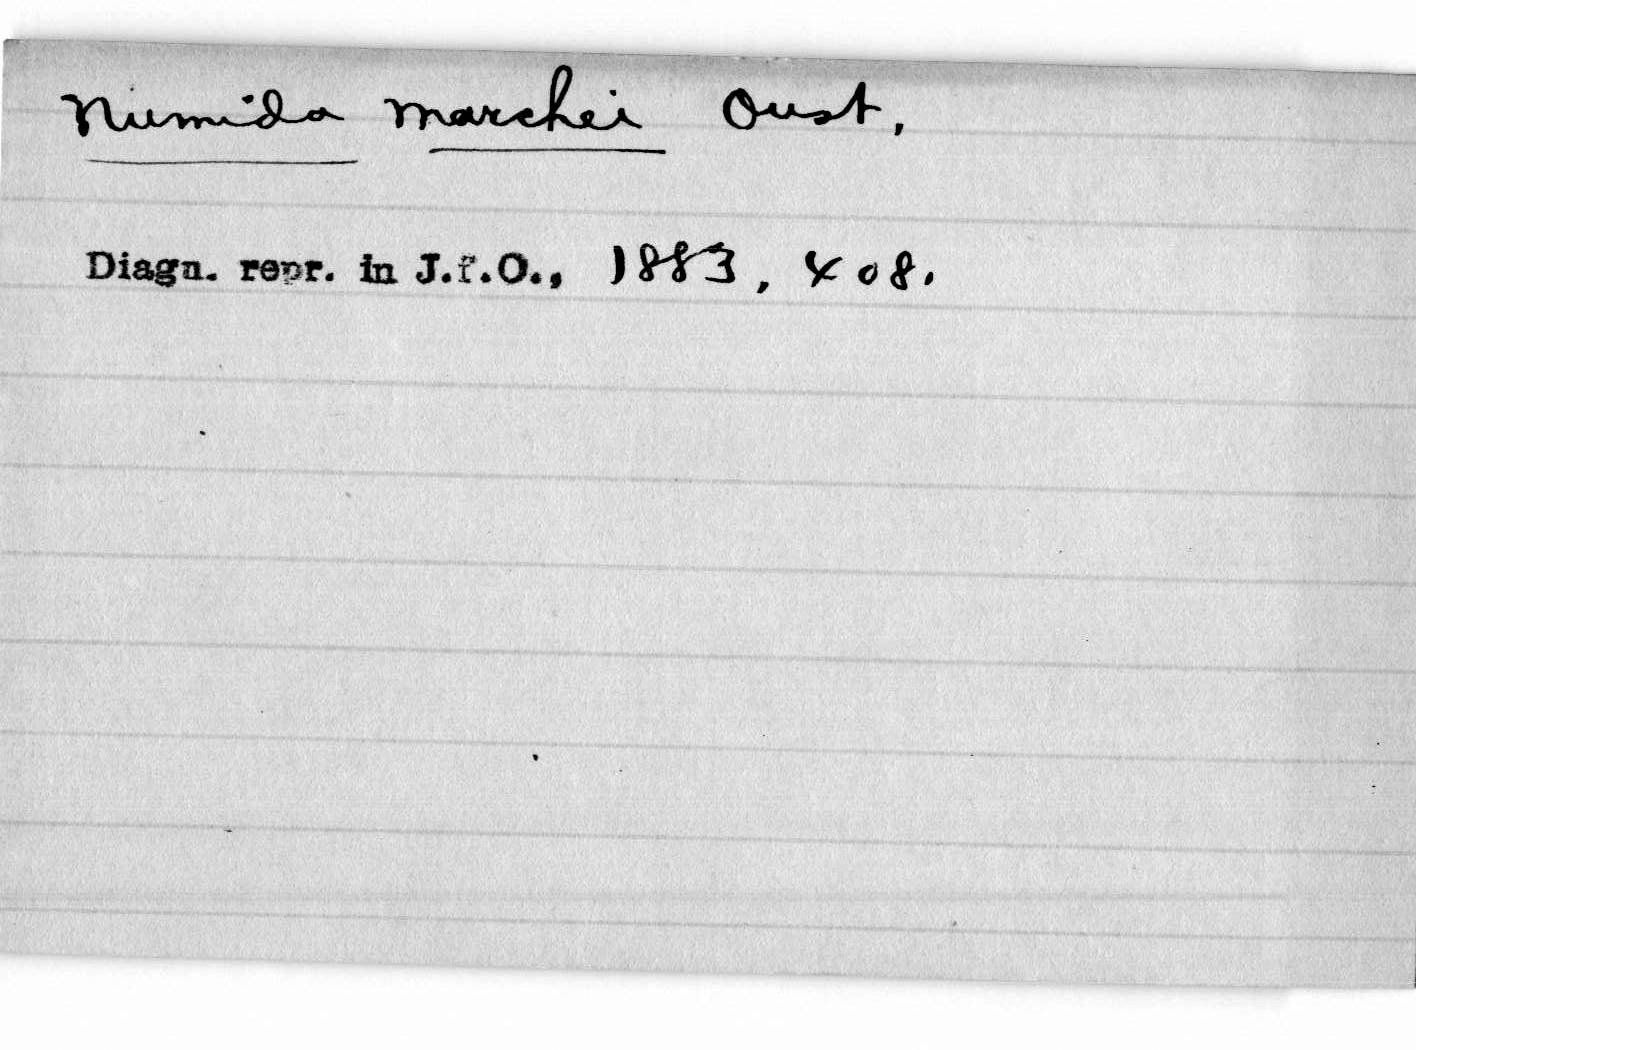 Numida marchei Oust,
Diagn. repr. in J.f.O., 1883, 408.